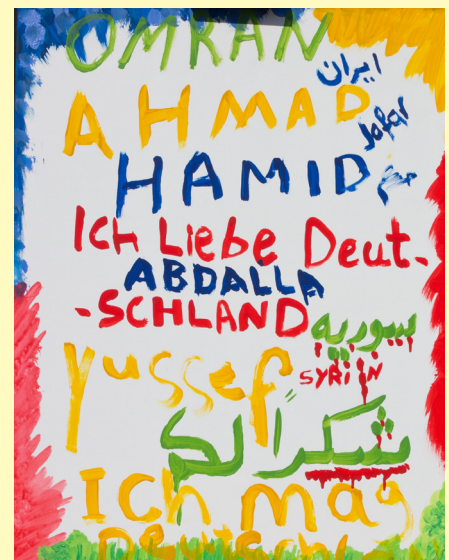 OMRAN
ايران
AHMAD
Jafar
HAMID
Ich Liebe Deut-
ABDALLA
-SCHLAND
سورية
SYRiIN
yussef
شكراً لك
Ich mag
Deutschl